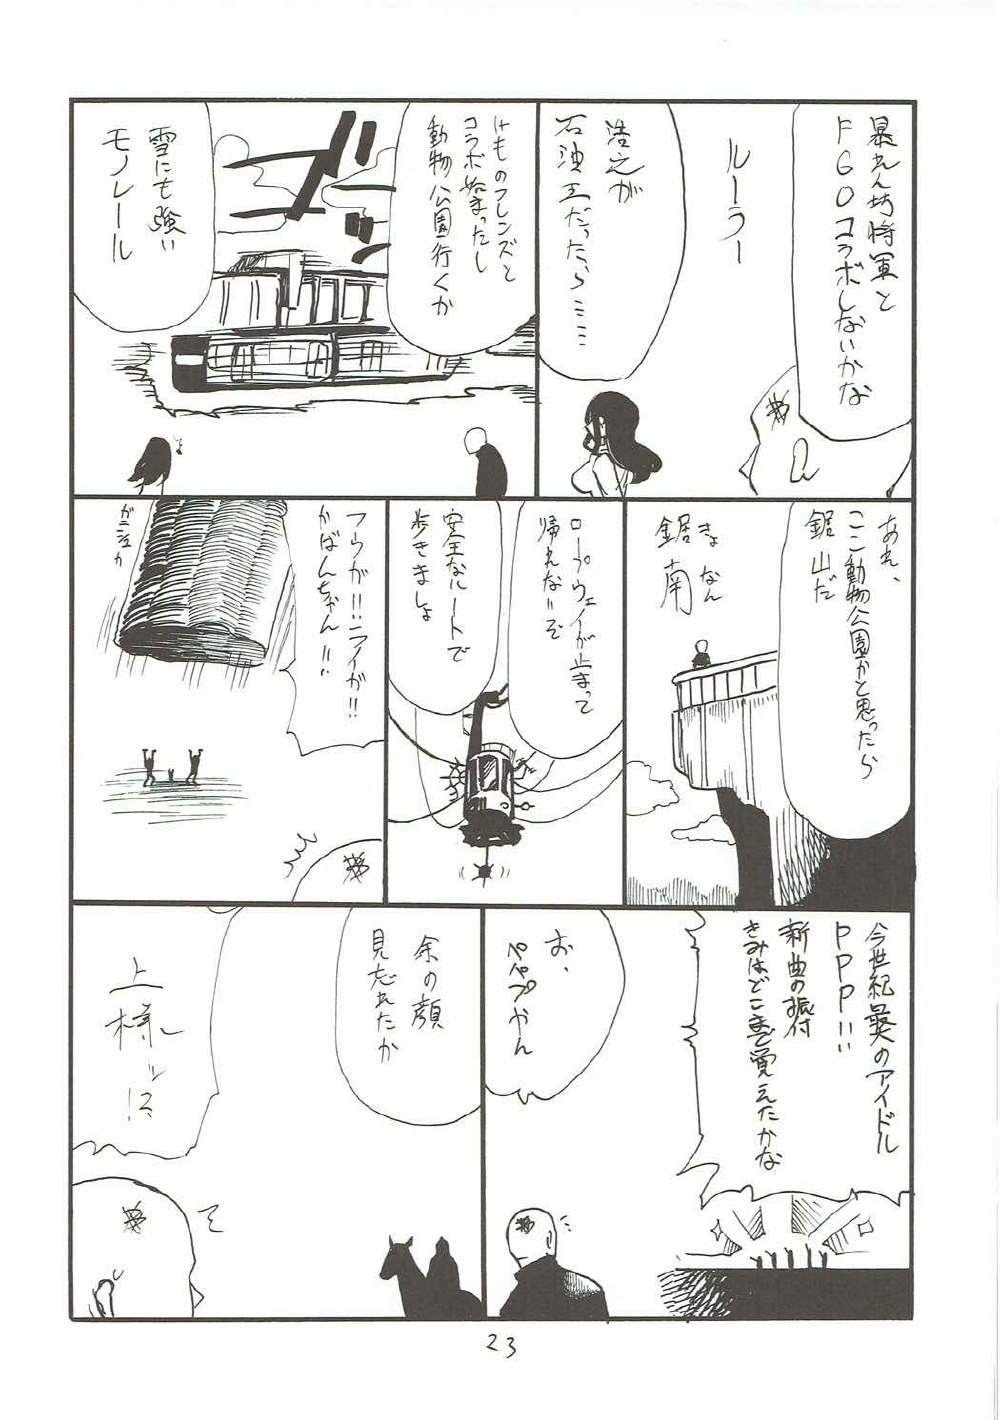 暴れん坊将軍と
FGOコラボしないかな
ルーラー
浩之が
石油王だったら……
けものフレンズと
コラボ始まったし
動物公園行くか
雪にも強い
モノレール
あれ、
ここ動物公園かと思ったら
鋸山だ
きょなん
鋸南
ロープウェイが止まって
帰れないぞ
安全なルートで
歩きましょ
フウが!!ライが!!
かばんちゃん!!
ガニシュカ
今世紀最後のアイドル
PPP!!
新曲の振付
きみはどこまで覚えたかな
お、
ペペプやん
余の顔
見忘れたか
上様ッ!?
23